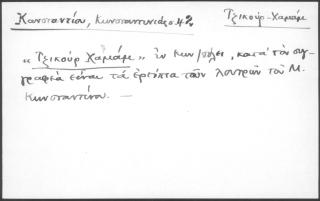 Κωνσταντίου, Κωνσταντινιάς σ. 42
Τζικούρ-Χαμάμ
«Τζικούρ Χαμάμ» ἐν Κων/πόλει, κατὰ τὸν συγ-
γραφέα εἶναι τὰ ἐρείπια τῶν λουτρῶν τοῦ Μ.
Κωνσταντίνου. —